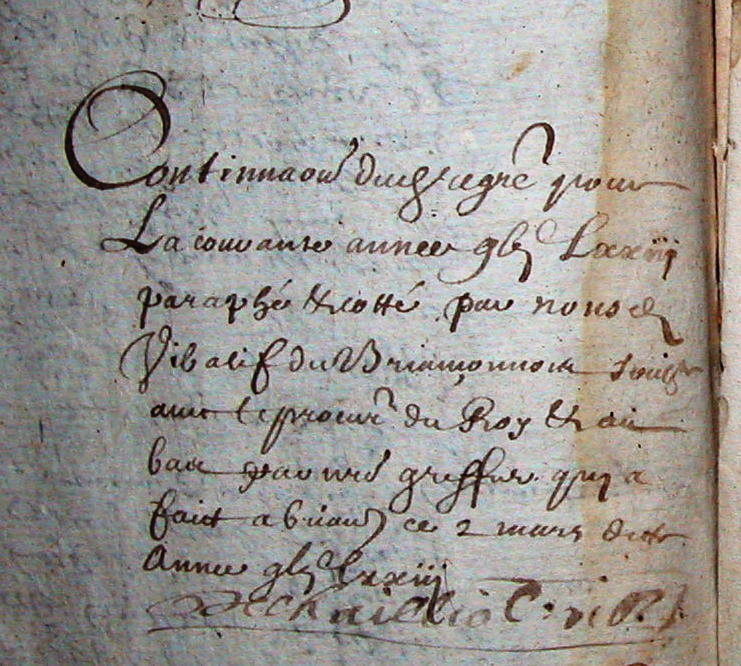 Continuaõn du registre pour
La courante année gbj^c Lxxiij
paraphé & cotté par nous
Vibalif du Briançonnois soubz^né
avec le procur^r du Roy & au
bas par n^re greffier qui a
faict a briançon ce 2 mars dicte
Année gbj^c Lxxiij